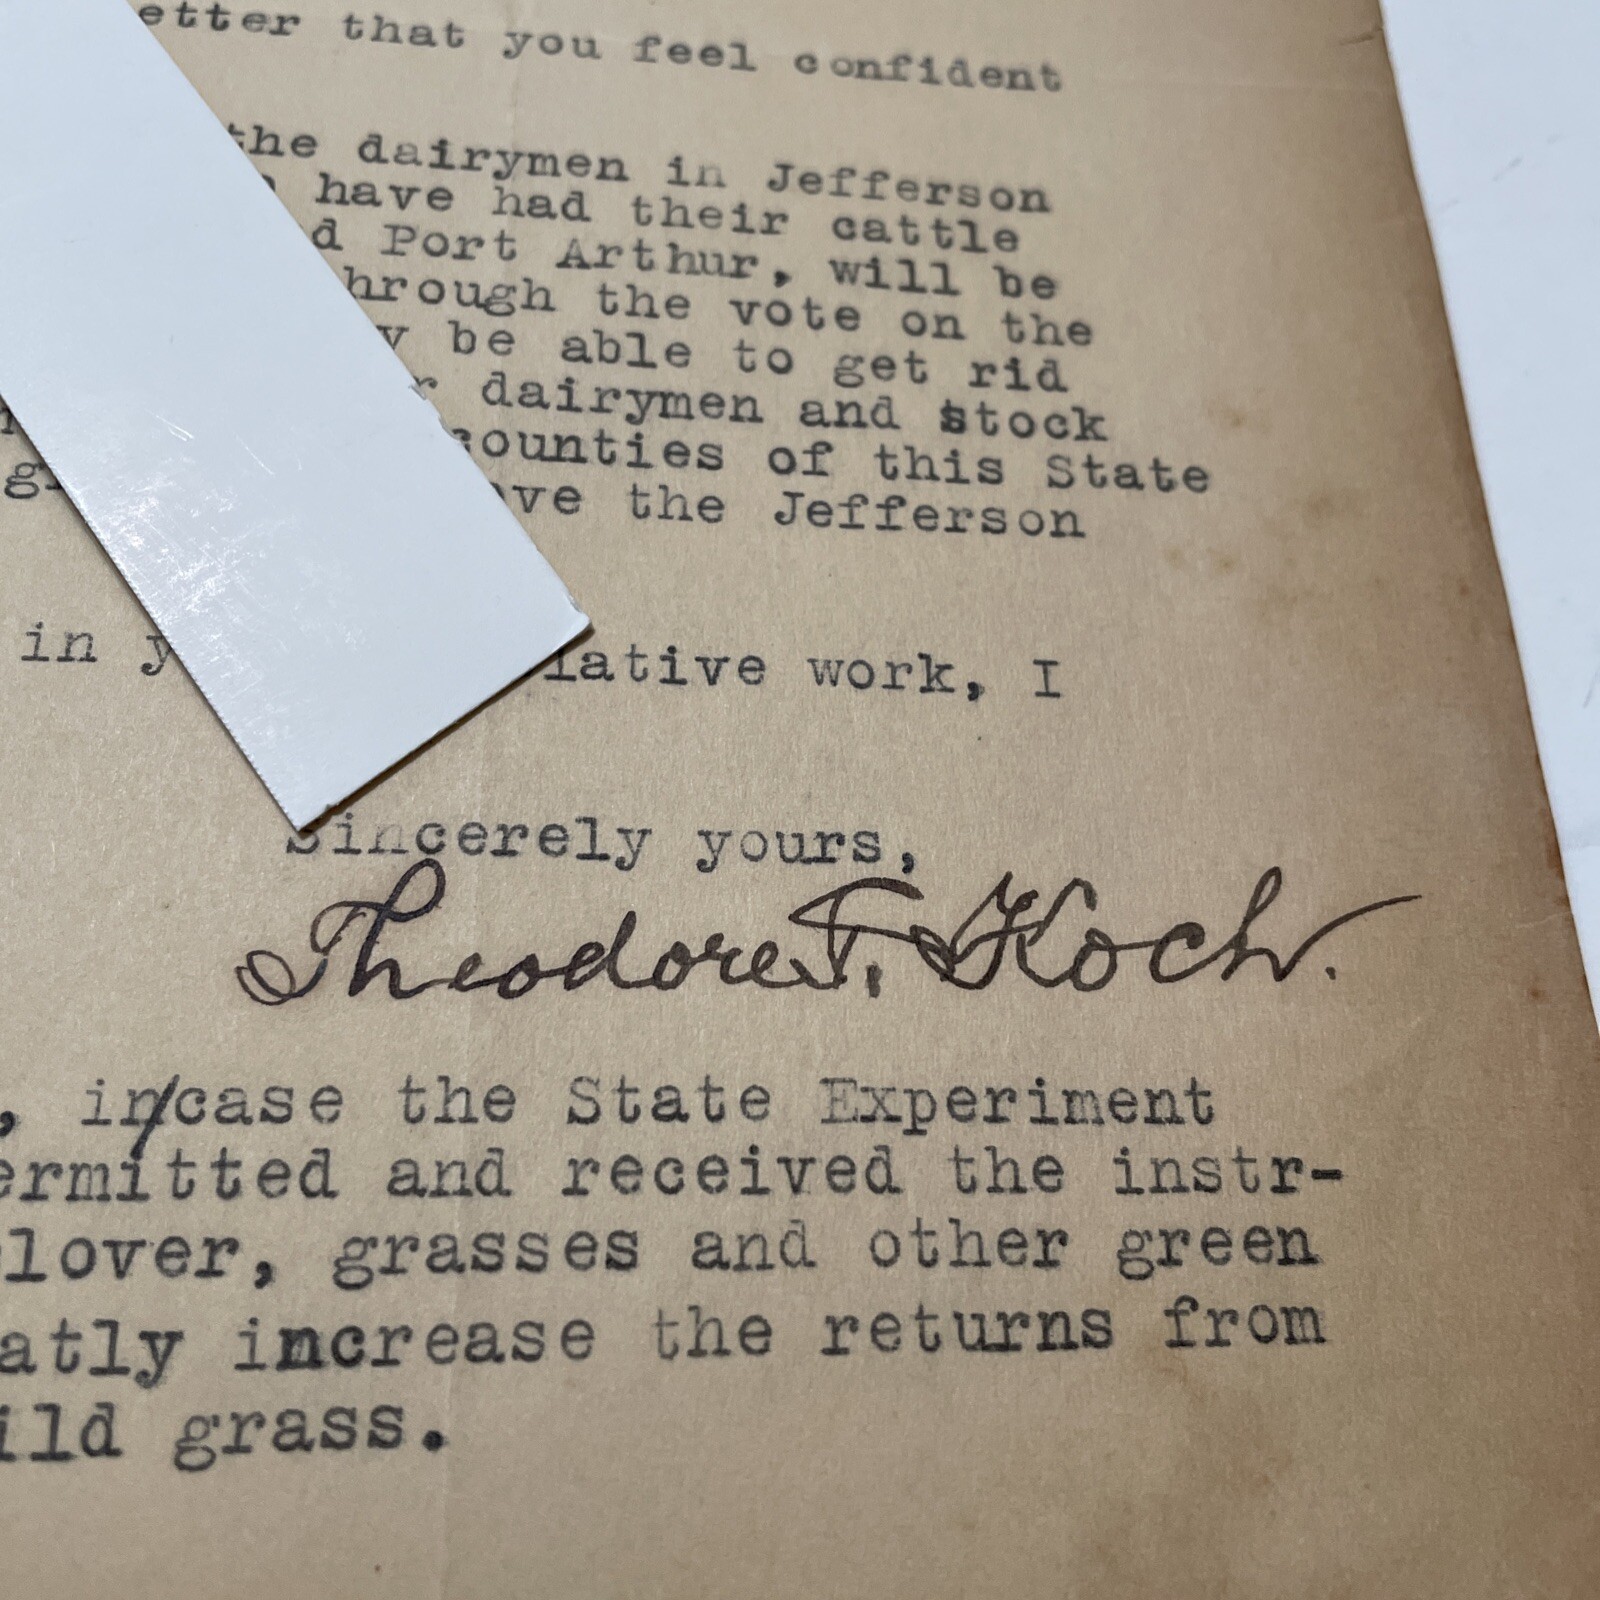 etter that you feel confident
the dairymen in Jefferson
have had their cattle
d Port Arthur, will be
hrough the vote on the
y be able to get rid
r dairymen and stock
counties of this State
gr ve the Jefferson
in y lative work, I
Sincerely yours,
Theodore F. Koch.
, in/case the State Experiment
ermitted and received the instr-
lover, grasses and other green
atly increase the returns from
ild grass.